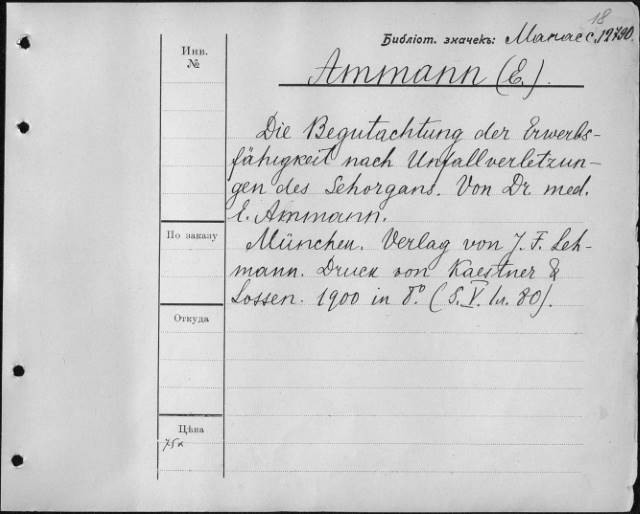 18
Библіот. значекъ: Манасс. 12790.
Инв.
№
Ammann (E.).
Die Begutachtung der Erwerbs-
fähigkeit nach Unfallverletzun-
gen des Sehorgans. Von Dr. med.
E. Ammann.
По заказу
München. Verlag von J. F. Leh-
mann. Druck von Kaestner &
Lossen. 1900 in 8°. (S. V. 1л. 80).
Откуда
Цѣна
75к